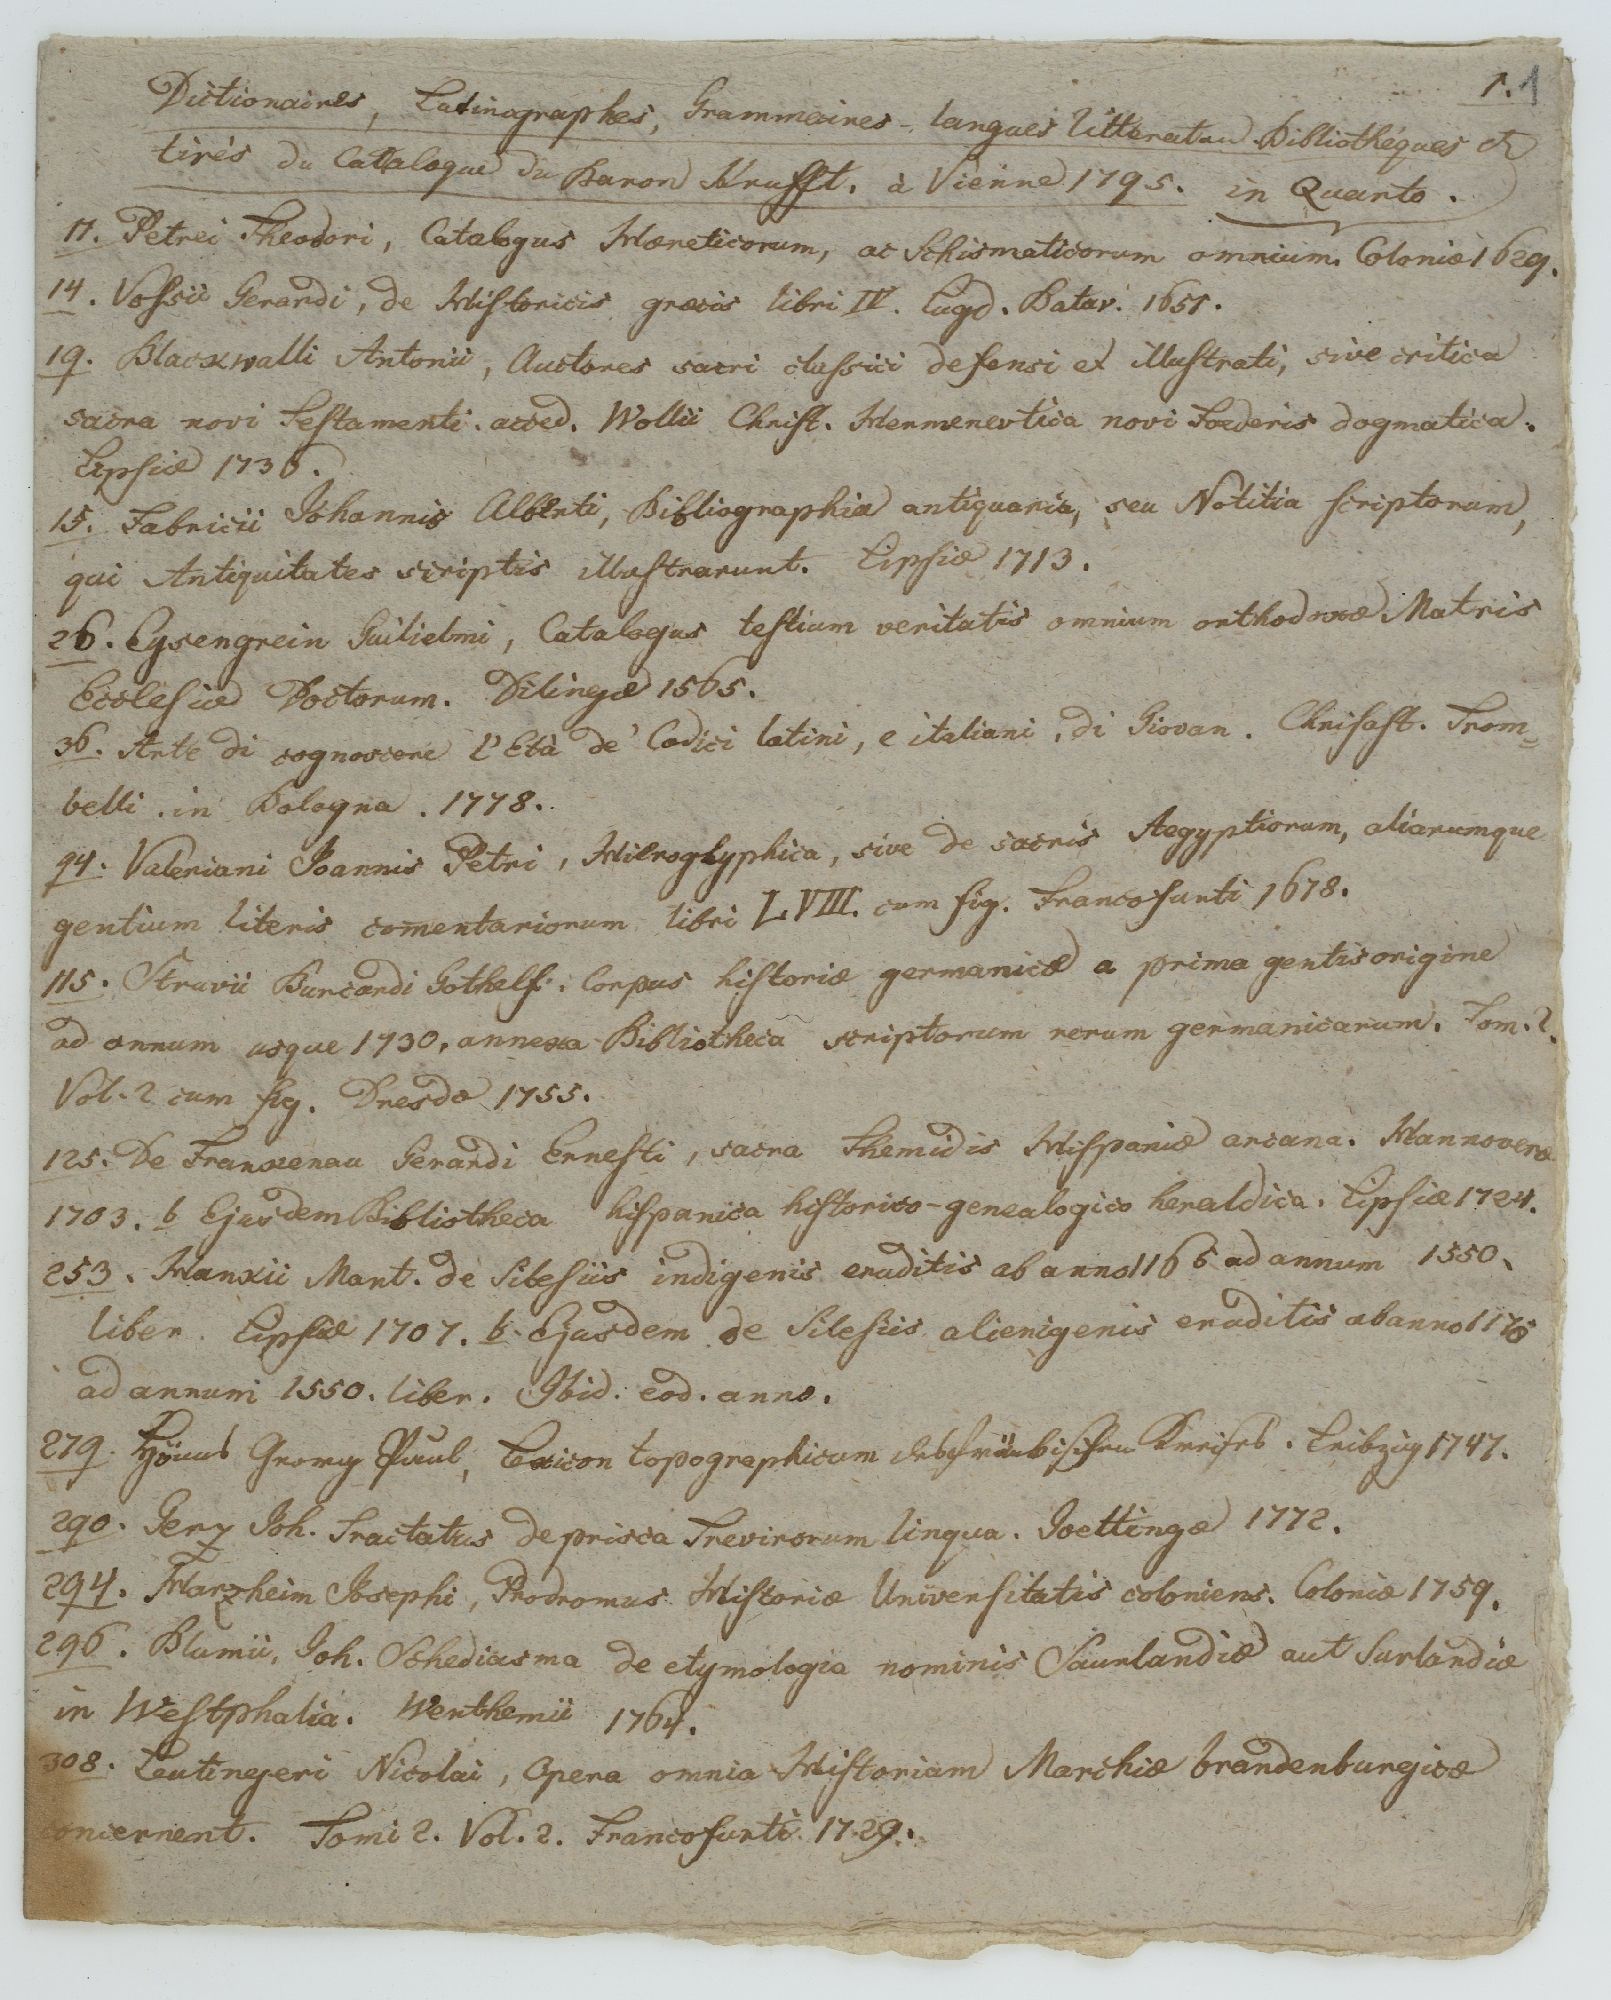 1. 1
Dictionaires, Latinographes, Grammaires - langues litteratur Bibliothéques &
tirés du Catalogue du Baron Krufft. à Vienne 1795. in Quarto.
11. Petrei Theodori, Catalogus Hæreticorum, ac Schismaticorum omnium. Coloniæ 1629.
14. Vossii Gerardi, de Historicis græcis libri IV. Lugd. Batav. 1651.
19. Blacxwalli Antonii, Auctores sacri classici defensi et illustrati, sive critica
sacra novi Testamenti. acced. Wollii Christ. Hermenevtica novi Foederis dogmatica.
Lipsiæ 1736.
15. Fabricii Johannis Alberti, Bibliographia antiquaria, seu Notitia scriptorum,
qui Antiquitates scriptis illustrarunt. Lipsiæ 1713.
26. Eysengrein Guilielmi, Catalogus testium veritatis omnium orthodoxæ Matris
Ecclesiæ Doctorum. Dilingæ 1565.
36. Arte di cognoscere l'Età de' Codici latini, e italiani, di Giovan. Chrisost. Trom=
belli. in Bologna. 1778.
94. Valeriani Joannis Petri, Hieroglyphica, sive de sacris Aegyptiorum, aliarumque
gentium literis comentariorum libri LVIII. cum fig. Francofurti 1678.
115. Struvii Burcardi Gothelf. Corpus historiæ germanicæ a prima gentis origine
ad annum usque 1730, annexa Bibliotheca scriptorum rerum germanicarum. Tom. 2.
Vol. 2 cum fig. Dresdæ 1755.
125. De Franxenau Gerardi Ernesti, sacra Themidis Hispaniæ arcana. Hannoveræ
1703. b Ejusdem Bibliotheca hispanica historico-genealogico heraldica. Lipsiæ 1724.
253. Hanxii Mart. de Silesiis indigenis eruditis ab anno 1165 ad annum 1550.
liber. Lipsiæ 1707. b. Ejusdem de Silesiis alienigenis eruditis ab anno 1170
ad annum 1550. liber. Ibid. eod. anno.
279. Hönns Georg Paul, Lexicon topographicum des fränkischen Kreises. Leibzig 1747.
290. Gerz Joh. Tractatus de prisca Trevirorum lingua. Goettingæ 1772.
294. Harzheim Josephi, Prodromus Historiæ Universitatis coloniens. Coloniæ 1759.
296. Blumii, Joh. Schediasma de etymologia nominis Saurlandiæ aut Surlandiæ
in Westphalia. Werthemii 1764.
308. Leutingeri Nicolai, Opera omnia Historiam Marchiæ brandenburgicæ
concernent. Tomi 2. Vol. 2. Francofurti 1729.